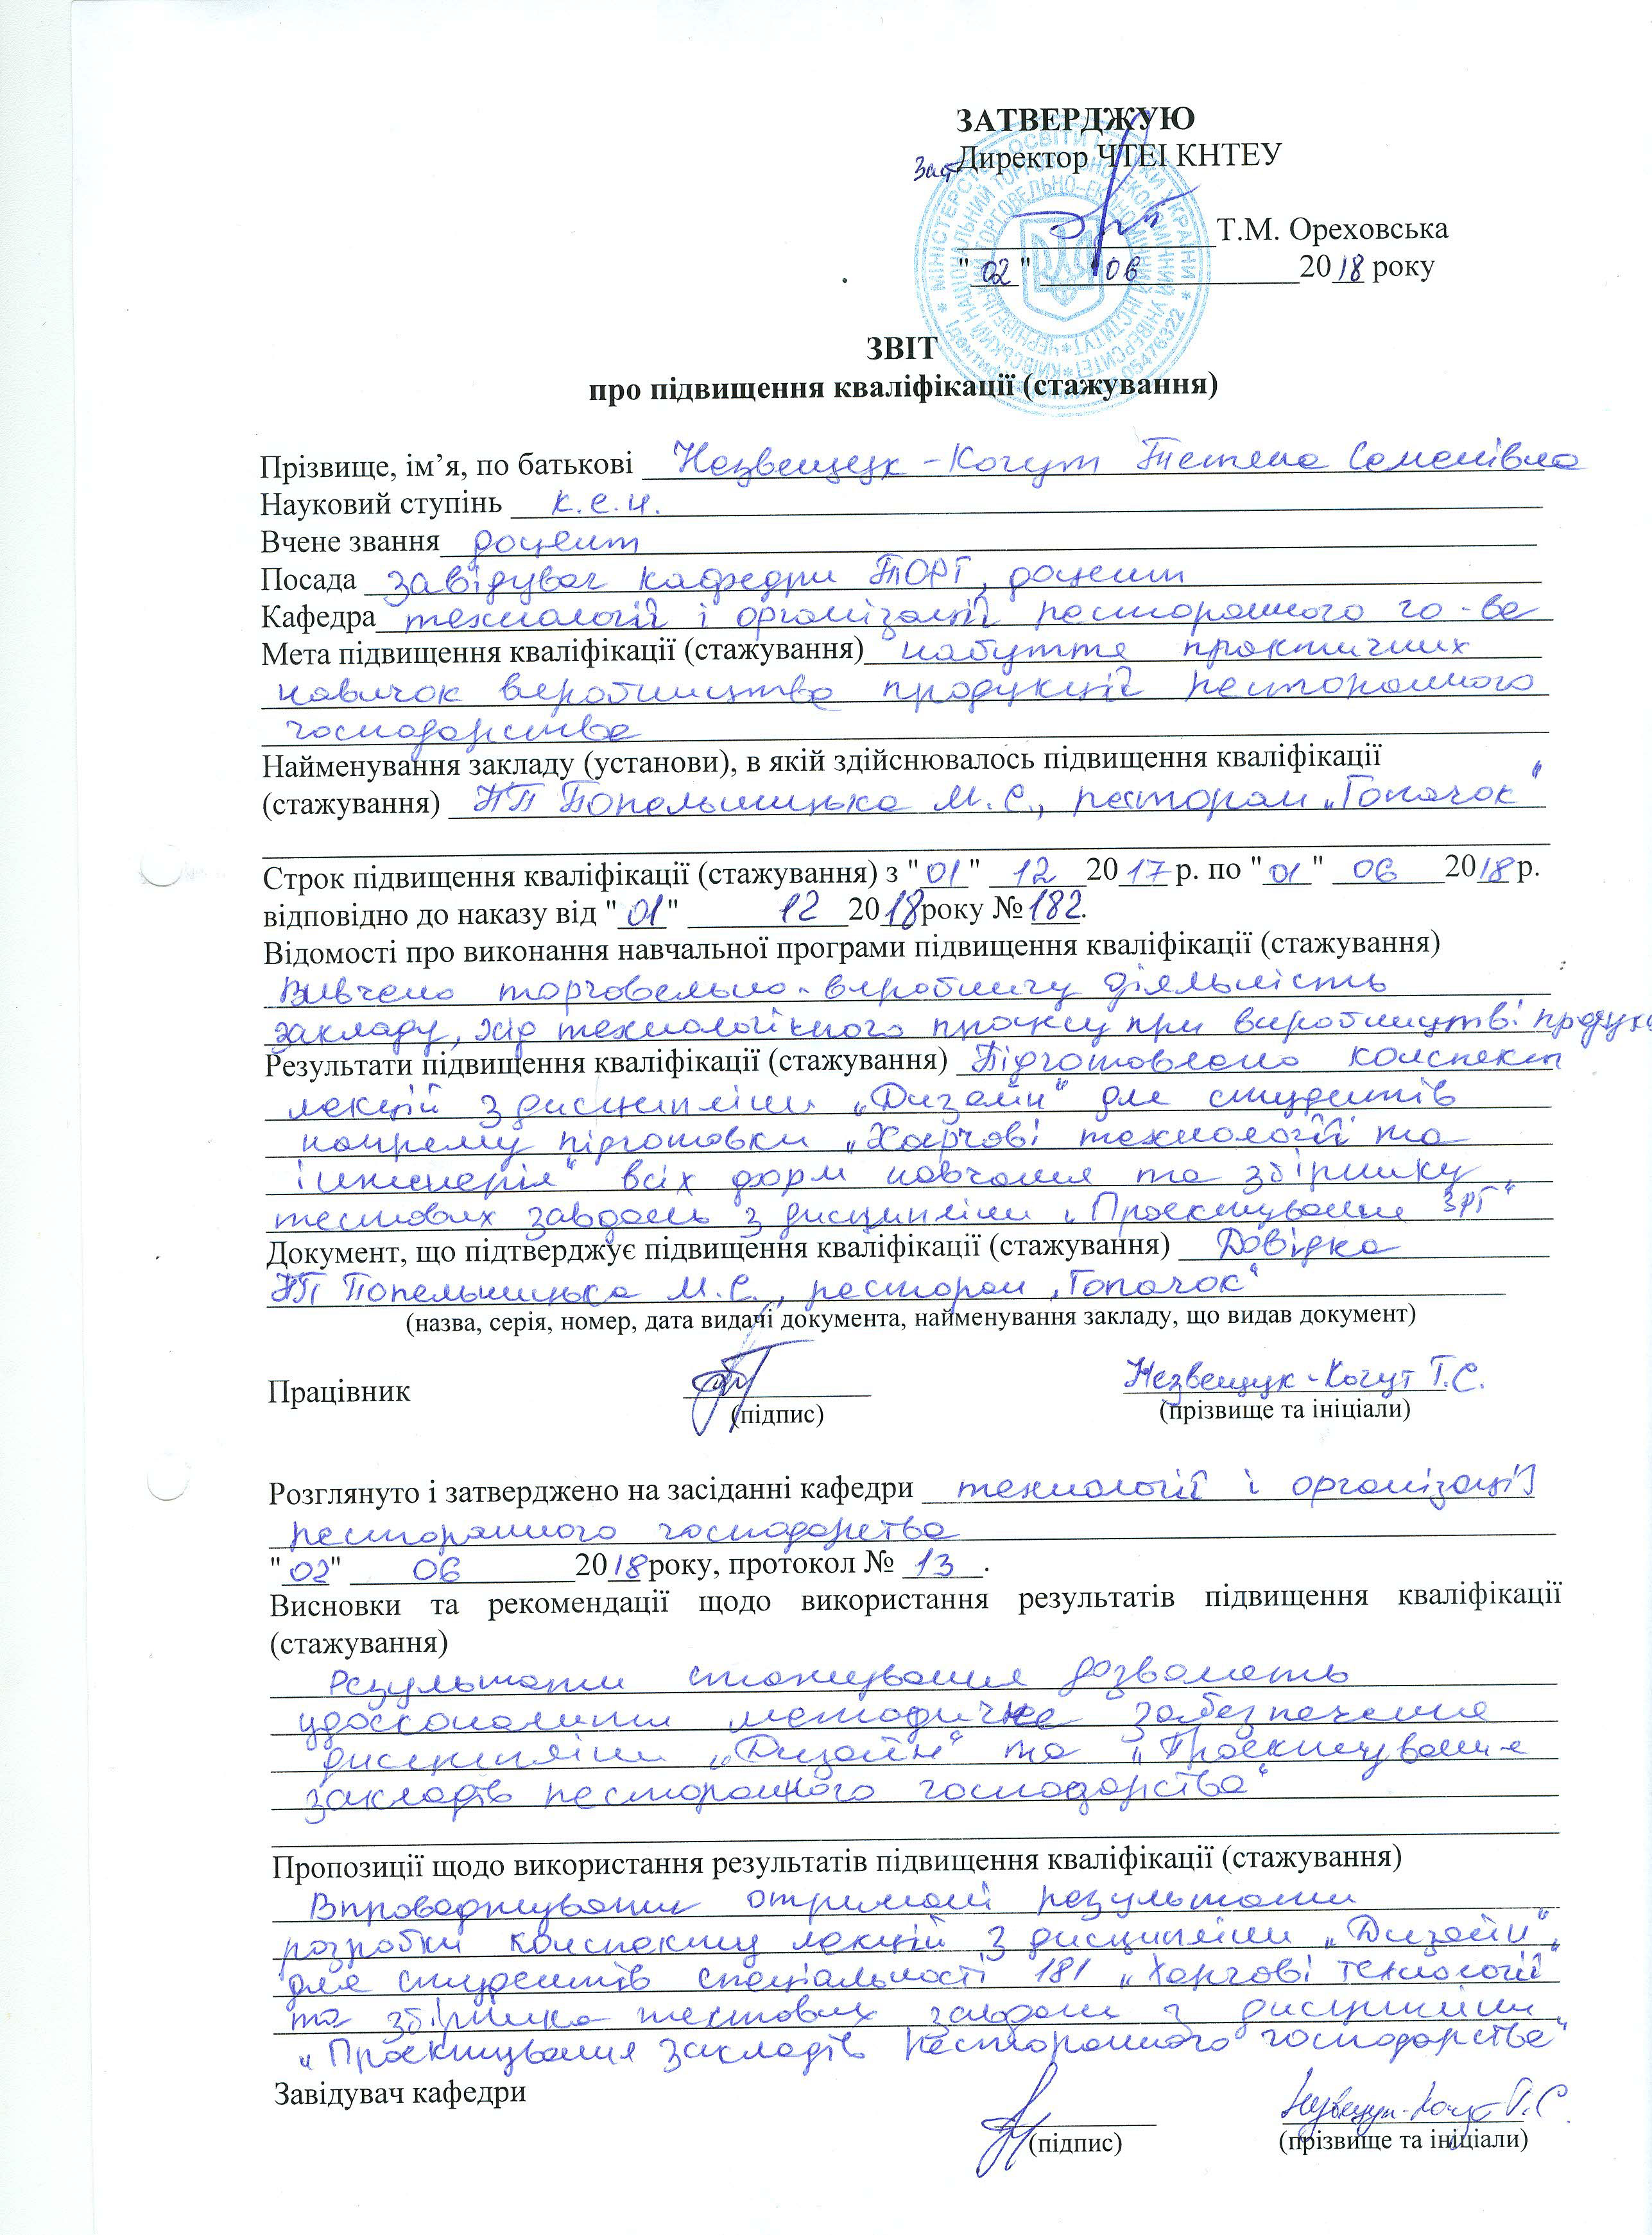 ЗАТВЕРДЖУЮ
Заст Директор ЧТЕІ КНТЕУ
Т.М. Ореховська
"02" 06 2018 року
ЗВІТ
про підвищення кваліфікації (стажування)
Прізвище, ім’я, по батькові Незвещук-Когут Тетяна Семенівна
Науковий ступінь к.е.н.
Вчене звання доцент
Посада завідувач кафедри ТОРГ, доцент
Кафедра технології і організації ресторанного го-ва
Мета підвищення кваліфікації (стажування) набуття практичних
навичок виробництва продукції ресторанного
господарства
Найменування закладу (установи), в якій здійснювалось підвищення кваліфікації
(стажування) ПП Попельницька М.С., ресторан „Гопачок“
Строк підвищення кваліфікації (стажування) з "01" 12 2017 р. по "01" 06 2018 р.
відповідно до наказу від "01" 12 2018 року № 182.
Відомості про виконання навчальної програми підвищення кваліфікації (стажування)
Вивчено торговельно-виробничу діяльність
закладу, хід технологічного процесу при виробництві
Результати підвищення кваліфікації (стажування) Підготовлено конспект
лекцій з дисципліни „Дизайн“ для студентів
напряму підготовки „Харчові технології та
інженерія“ всіх форм навчання та збірнику
тестових завдань з дисципліни „Проектування ЗРГ“
Документ, що підтверджує підвищення кваліфікації (стажування) Довідка
ПП Попельницька М.С., ресторан „Гопачок“
(назва, серія, номер, дата видачі документа, найменування закладу, що видав документ)
Працівник Незвещук-Когут Т.С.
(підпис) (прізвище та ініціали)
Розглянуто і затверджено на засіданні кафедри технології і організації
ресторанного господарства
"02" 06 2018 року, протокол № 13.
Висновки та рекомендації щодо використання результатів підвищення кваліфікації
(стажування)
Результати стажування дозволять
удосконалити методичне забезпечення
дисципліни „Дизайн“ та „Проектування
закладів ресторанного господарства“
Пропозиції щодо використання результатів підвищення кваліфікації (стажування)
отримані результати
розробки конспекту лекцій з дисципліни „Дизайн“,
для студентів спеціальності 181 „Харчові технології“
та збірника тестових завдань з дисципліни
„Проектування закладів ресторанного господарства“
Завідувач кафедри Незвещук-Когут Т.С.
(підпис) (прізвище та ініціали)